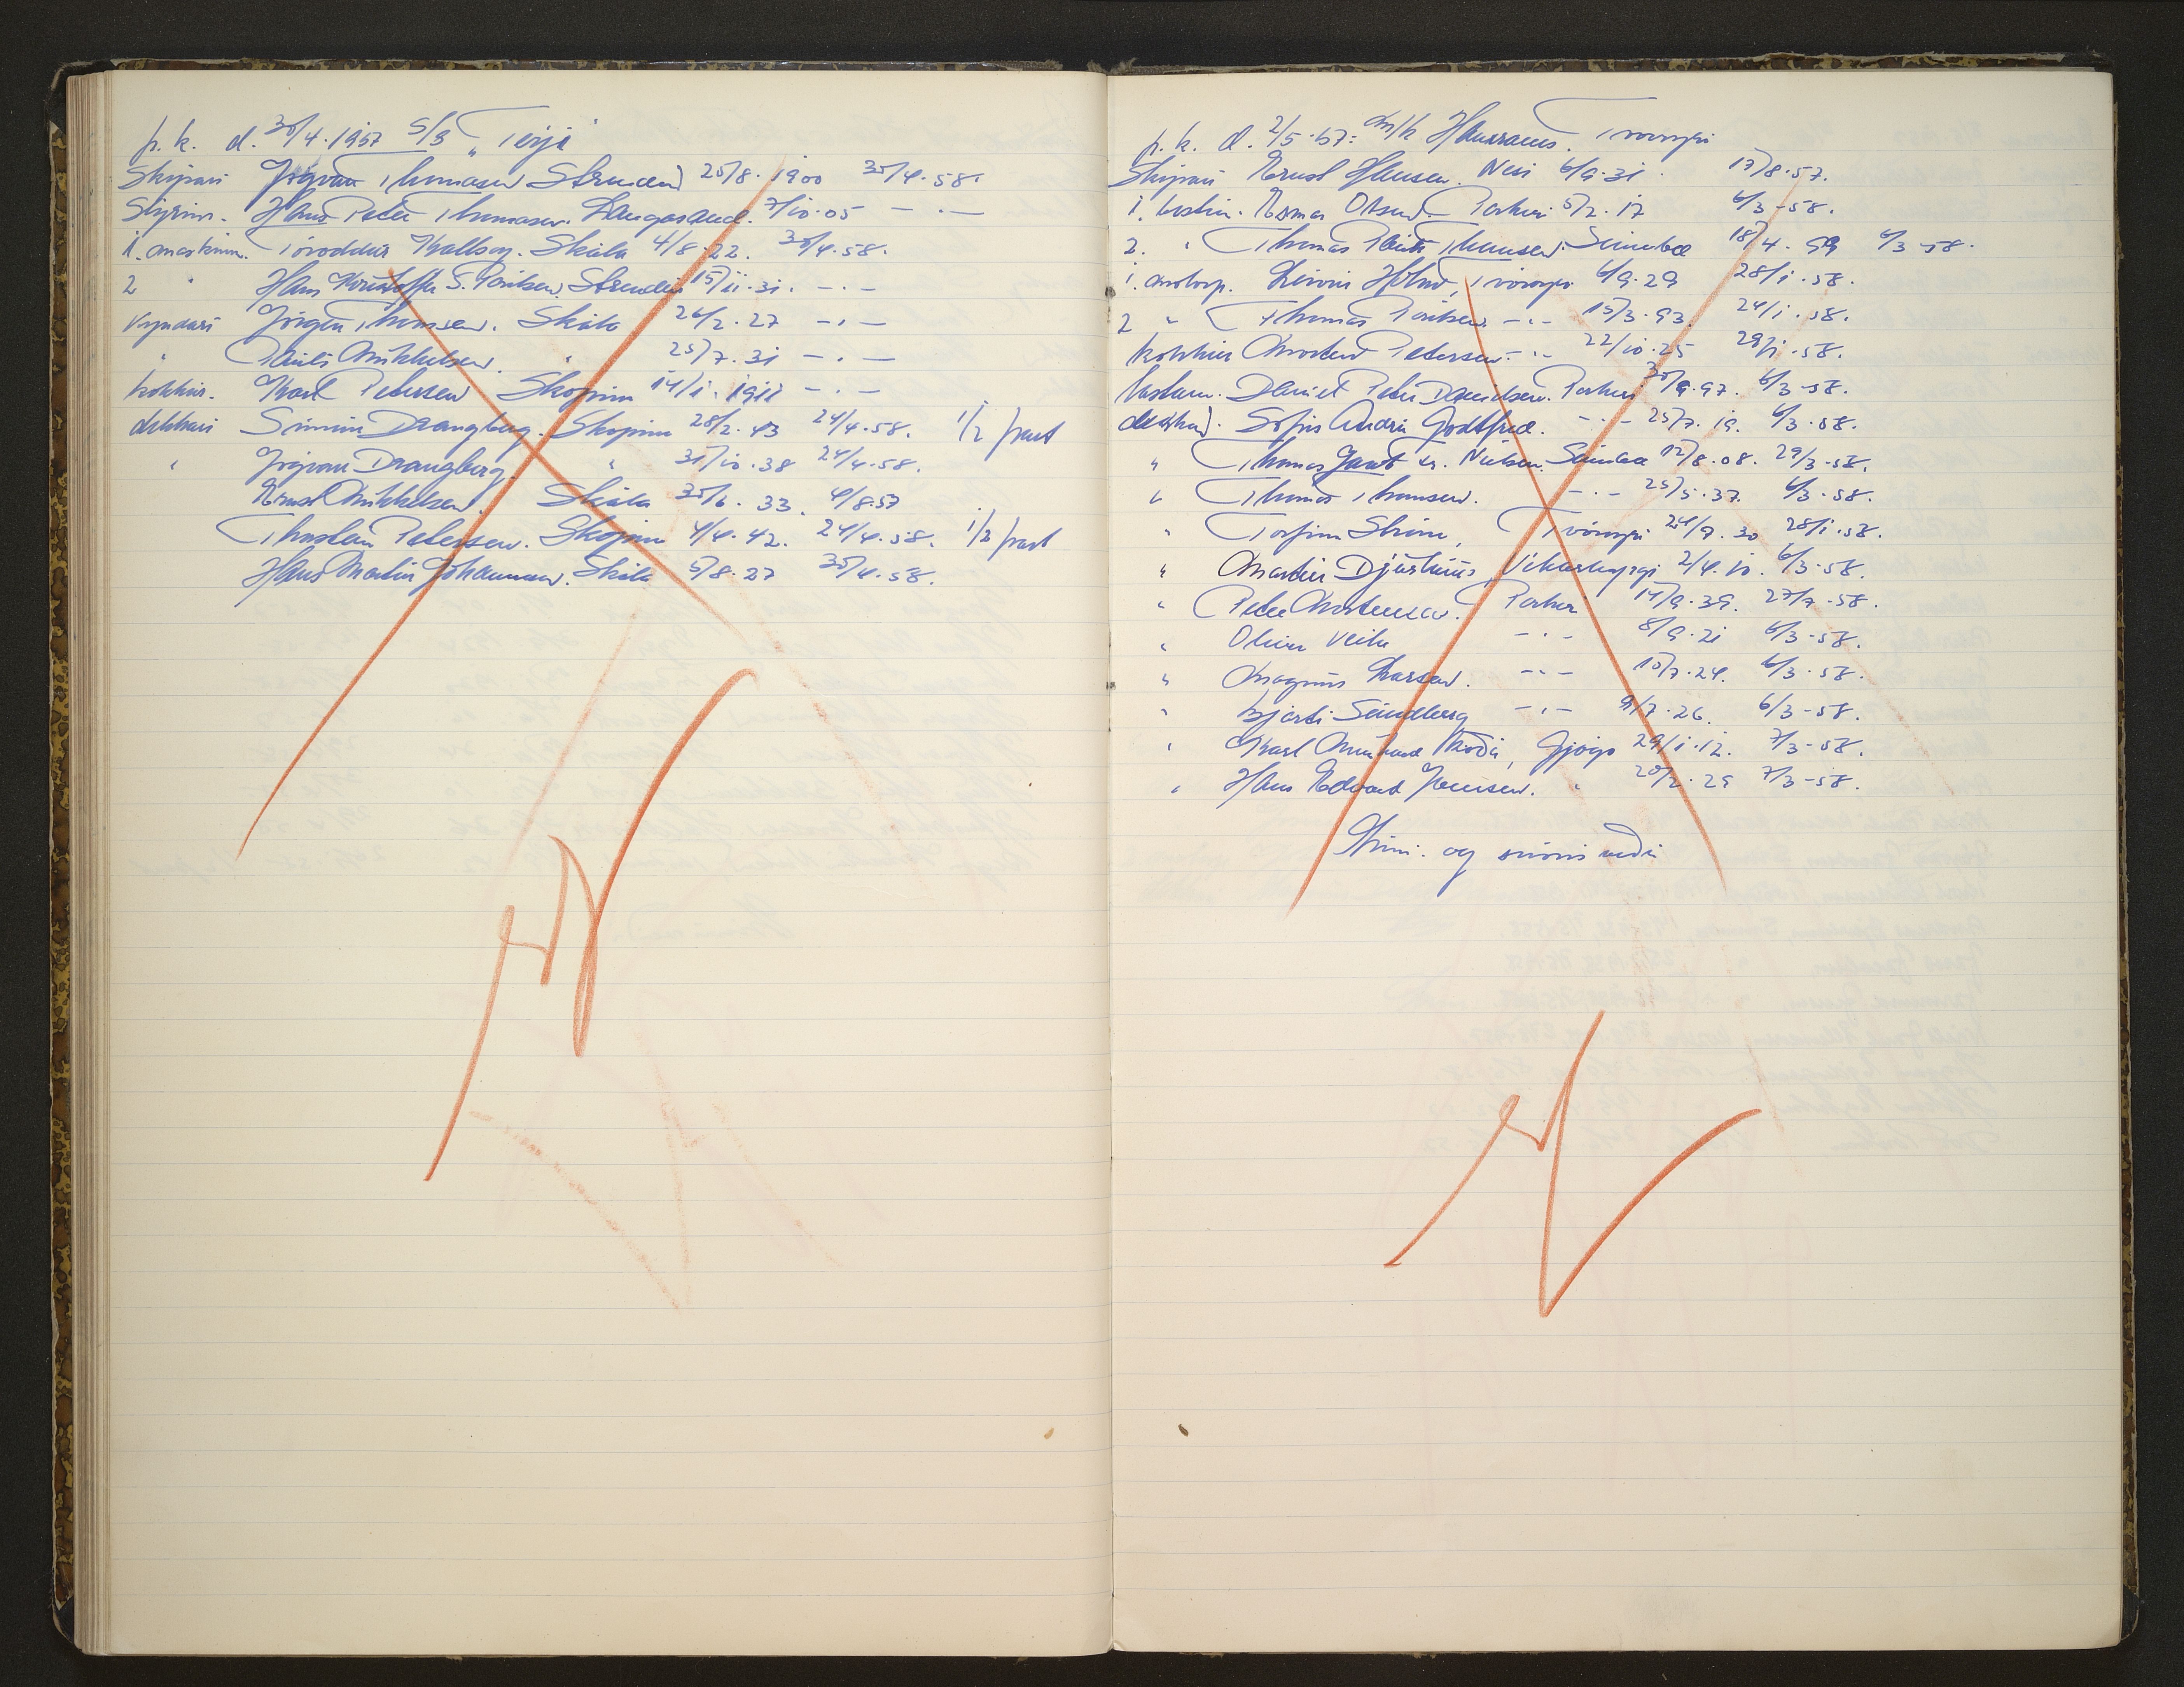 p. k. d. 30/4·1957 S/S "Terji"
Skipari Jógvan Thomasen Strendur 25/8·1900 30/4·58.
Stýrim. Hans Peter Thomasen. Langasand. 7/10·05 -·-
1. maskinm. Tóroddur Kallsoy. Skála 4/8·22. 30/4·58.
2 " Hans Kristoffur S. Poulsen. Strendur 15/11·31. -·-
Kyndari Jørgen Thomsen. Skála 26/2·27 -·-
" Páll Mikkelsen. " 25/7·31 -·-
kokkur. Karl Petersen Skopun 14/1·1911 -·-
dekkari Simun Drangberg. Skopun 28/2·43 24/4·58. 1/2 part
" Jógvan Drangberg. " 31/10·38 24/4·58.
Ernst Mikkelsen. Skála 30/6·33. 4/8·57
Thorstein Petersen. Skopun 4/4·42. 24/4·58. 1/2 part
Hans Martin Johannesen. Skála 5/8·27 30/4·58.
p. k. d. 2/5·57: m/k Havranes. Tvøroyri
Skipari Ernst Hansen. Nesi 6/9·31. 17/8·57.
1. bestm. Esmar Olsen. Porkeri 5/2·17 6/3-58.
2. " Thomas Pauli Thomsen. Sumba 18/4·99 6/3-58.
1. motorp. Leivur Holm, Tvøroyri 6/9·29 28/1·58.
2 " Thomas Poulsen. -·- 15/3·93. 24/1·58.
kokkur Morten Petersen. -·- 22/10·25 29/1·58.
bestm. Daniel Peter Danielsen. Porkeri 30/9·97. 6/3-58.
dekkari. Sofus Andri Godtfred. -·- 25/7·19. 6/3·58.
" Thomas Jacob Kr. Nielsen. Sumba 12/8·08. 29/3-58.
" Thomas Thomsen. -·- 25/5·37. 6/3·58.
" Torfinn Strøm, Tvøroyri 24/9·30 28/1·58.
" Martin Djurhuus Vikarbyrgi 2/4·10. 6/3-58.
" Peter Mortensen. Porkeri 14/9·39. 27/7·58.
" Oliver Veihe -·- 8/9·21 6/3-58.
" Magnus Larsen. -·- 15/7·24. 6/3·58.
" Bjarti Sundberg -·- 9/7·26. 6/3-58.
" Karl, Gjógv 29/1·12. 7/3-58.
" Hans Edvard Joensen. " 20/2·29 7/3-58.
og